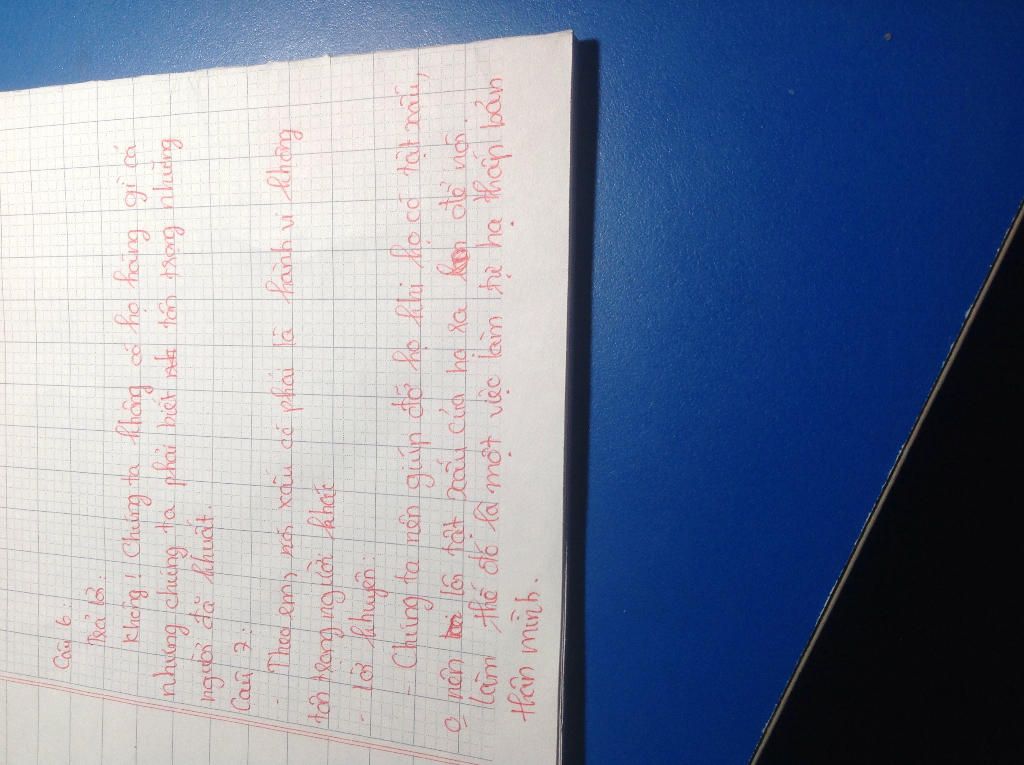 Câu 6:
Trả lời:
Không! Chúng ta không có họ hàng gì cả
nhưng chúng ta phải biết tôn trọng những
người đã khuất.
Câu 7:
- Theo em, nói xấu có phải là hành vi không
tôn trọng người khác
- Lời khuyên:
- Chúng ta nên giúp đỡ họ khi họ có tật xấu,
nên lôi tật xấu của họ ra để nói.
Làm thế đó là một việc làm tự hạ thấp bản
thân mình.